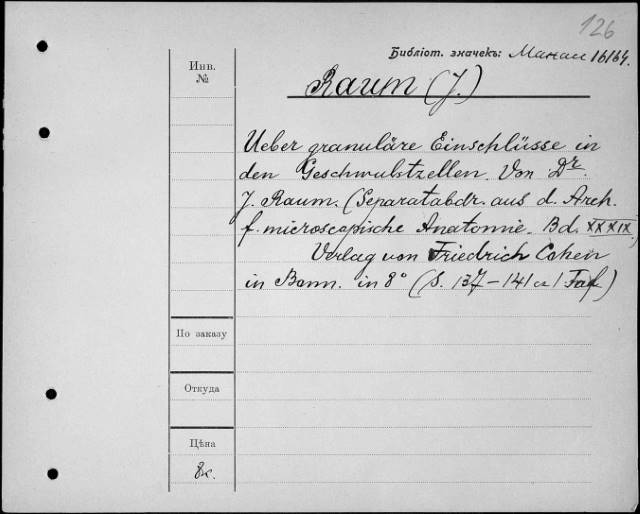 126
Библіот. значекъ: Манас 16164.
Инв.
№
Raum (J.)
Ueber granuläre Einschlüsse in
den Geschwulstzellen. Von Dr.
J. Raum. (Separatabdr. aus d. Arch.
f. microscopische Anatomie. Bd. XXXIX.)
Verlag von Friedrich Cohen
in Bonn. in 8° (S. 137–141 съ 1 Taf.)
По заказу
Откуда
Цѣна